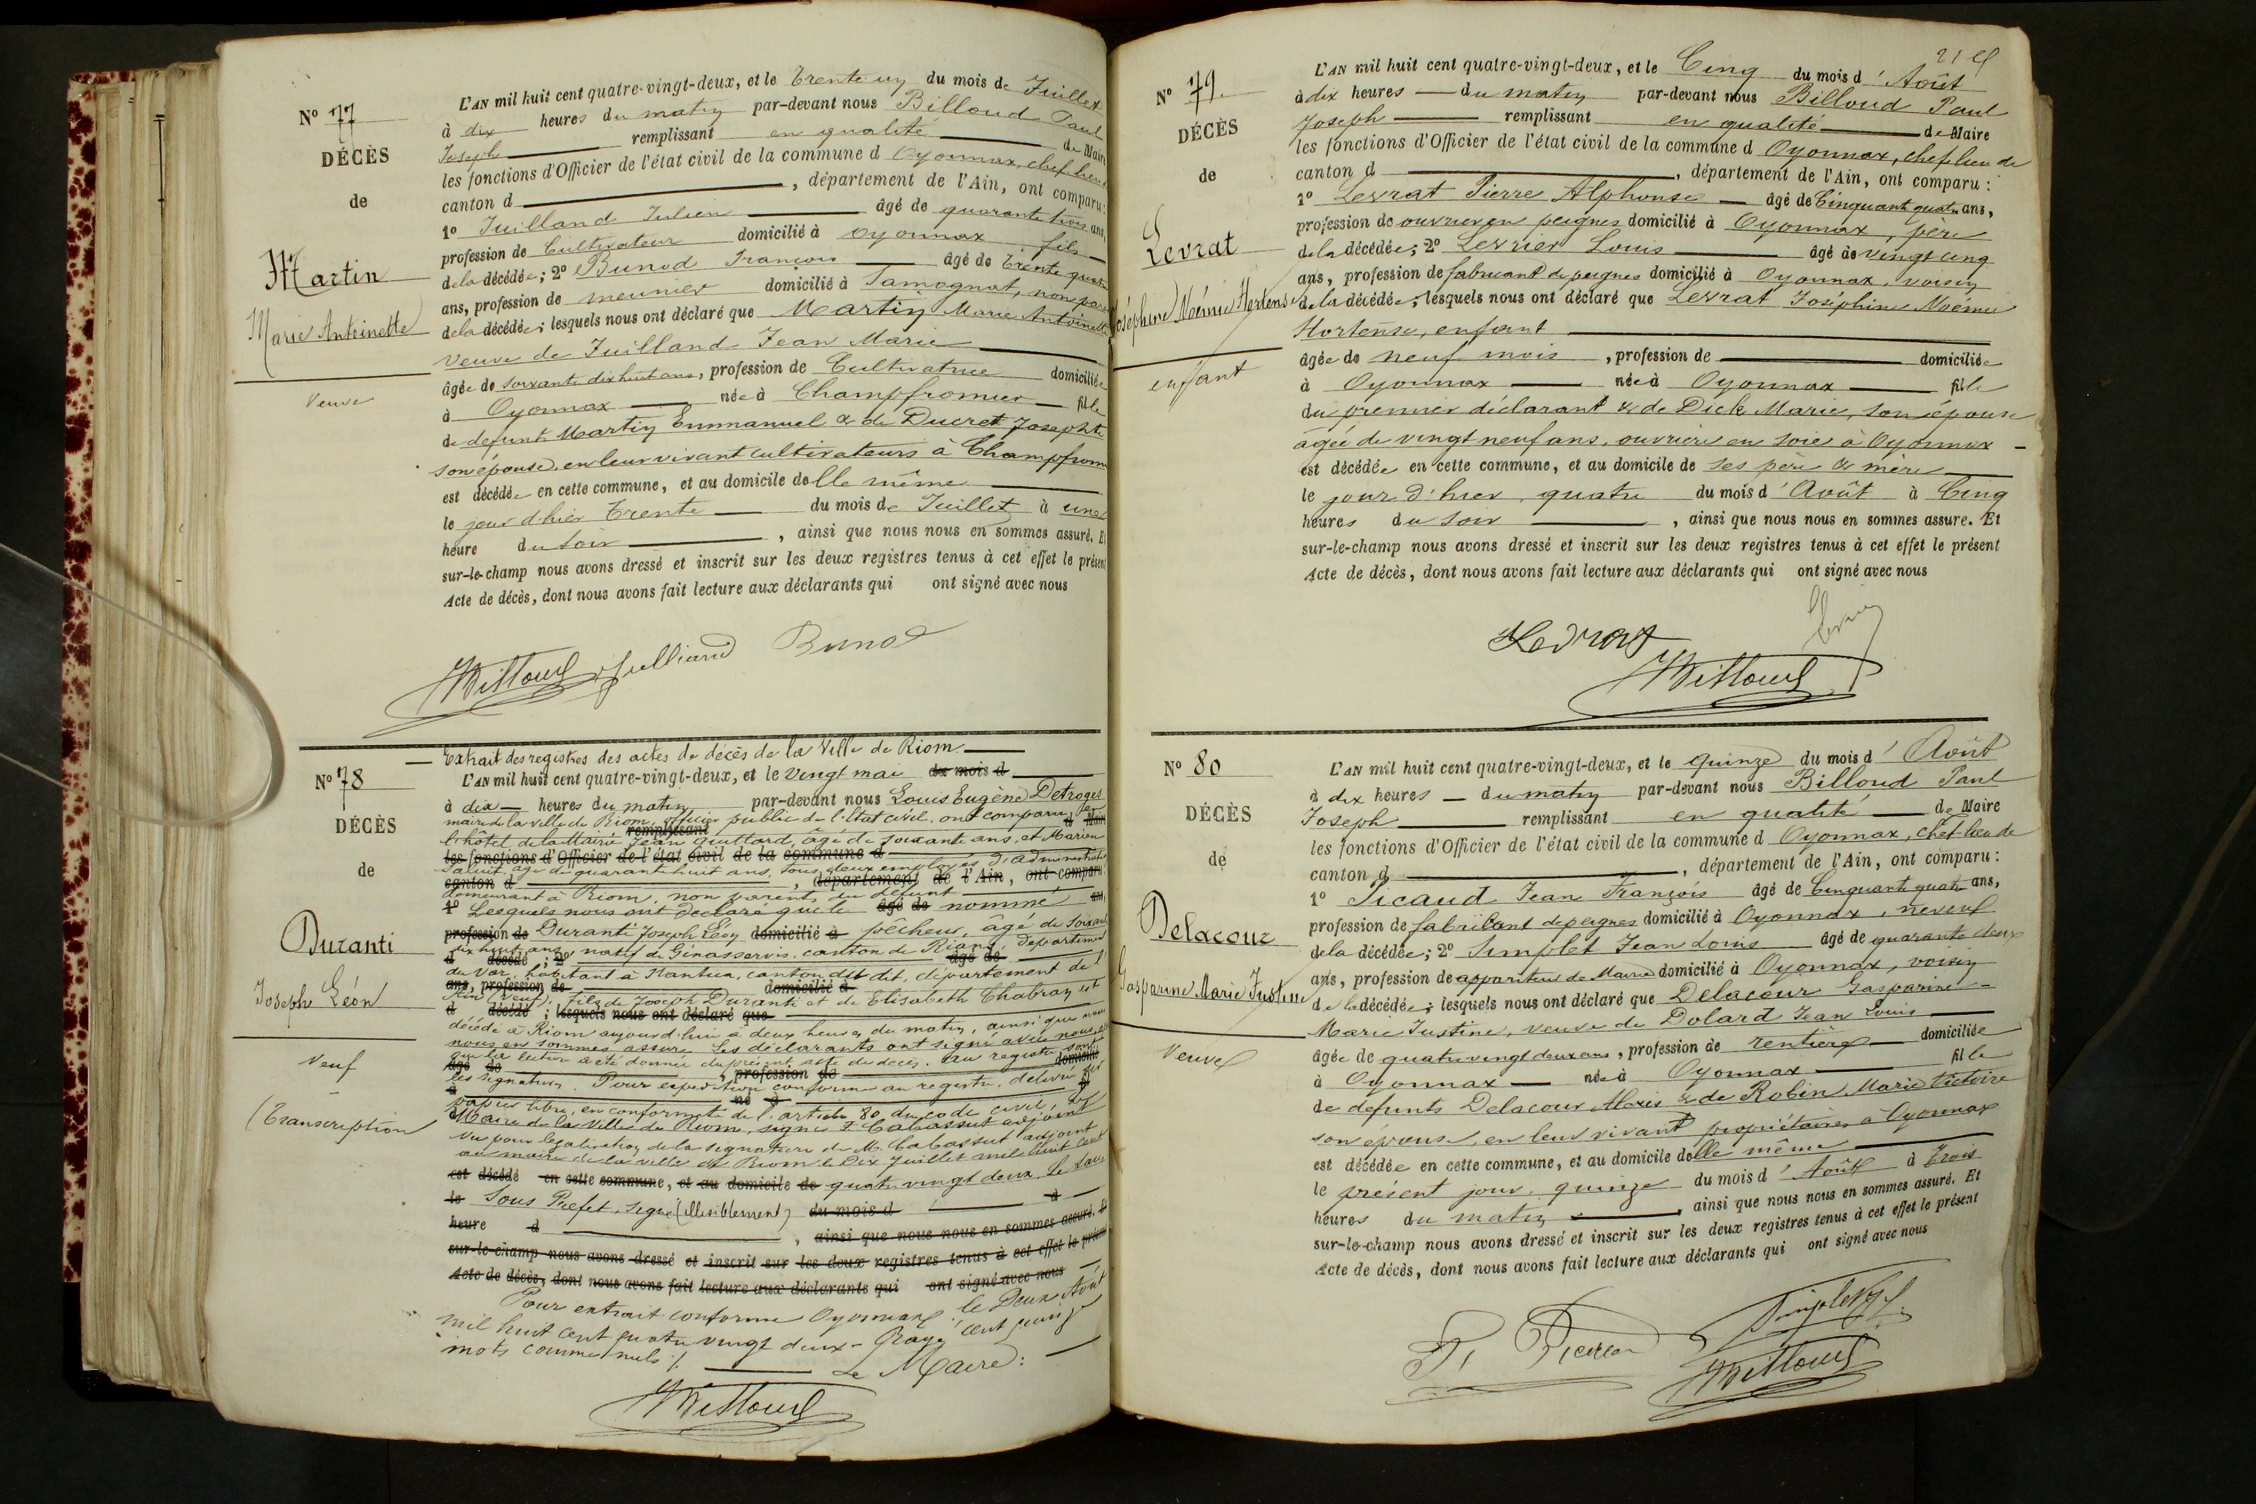 N° 77
DÉCÈS
de
Martin
Marie Antoinette
Veuve
L'AN mil huit cent quatre-vingt-deux, et le Trente un du mois de Juillet
à dix heures du matin par-devant nous Billoud Paul
Joseph remplissant en qualité de Maire
les fonctions d'Officier de l'état civil de la commune d Oyonnax, chef lieu
canton d , département de l'Ain, ont comparu:
1° Juilland Julien âgé de quarante trois ans,
profession de Cultivateur domicilié à Oyonnax, fils
de la décédée; 2° Bunod François âgé de Trente quatre
ans, profession de meunier domicilié à Samognat, non parent
de la décédée; lesquels nous ont déclaré que Martin Marie Antoinette
veuve de Juilland Jean Marie
âgée de soixante dix huit ans, profession de Cultivatrice domiciliée
à Oyonnax née à Champfromier fille
de defunts Martin Emmanuel & de Ducret Josephte
son épouse, en leur vivant cultivateurs à Champfromier
est décédée en cette commune, et au domicile delle même
le jour d'hier Trente du mois de Juillet à une
heure du soir , ainsi que nous nous en sommes assuré. Et
sur-le-champ nous avons dressé et inscrit sur les deux registres tenus à cet effet le présent
Acte de décès, dont nous avons fait lecture aux déclarants qui ont signé avec nous
Billoud Juilliand Bunod
N° 78
DÉCÈS
de
Duranti
Joseph Léon
Veuf
(Transcription
Extrait des registres des actes de décès de la Ville de Riom
L'AN mil huit cent quatre-vingt-deux, et le vingt mai du mois d
à dix heures du matin par-devant nous Louis Eugène Detroges
maire de la ville de Riom, officier public de l'Etat civil, ont comparu, en
remplissant de Maire
l'hôtel de la Mairie Jean Guittard, âgé de soixante ans, et Marien
les fonctions d'Officier de l'état civil de la commune d
âgé de quarante huit ans, tous deux employés d'administration
canton d , département de l'Ain, ont comparu:
demeurant à Riom, non parents du défunt
1° Lesquels nous ont déclaré que le âgé de nommé ans,
profession de Duranti Joseph Léon domicilié à pêcheur, âgé de soixante
dix huit ans, natif de Ginasservis, canton de Rians, Département
d décédé; 2° âgé de
du Var, habitant à Nantua, canton dit dit, département de l'
ans, profession de domicilié à
Ain, veuf, fils de Joseph Duranti et de Elisabeth Chabran est
d décédé; lesquels nous ont déclaré que
décédé à Riom aujourd'hui à deux heures du matin, ainsi que nous
nous en sommes assuré. Les déclarants ont signé avec nous, après
que la lecture a été donnée du présent acte de décès. Au registre sont
âgé de , profession de domicilié
les signatures. Pour expédition conforme au registre, délivré sur
à né à fil
papier libre, en conformité de l'article 80 du code civil, le
Maire de la Ville de Riom, signé F. Cabassut adjoint
Vu pour légalisation de la signature de Mr. Cabassut adjoint
au maire de la ville de Riom le Dix Juillet mil huit cent
est décédé en cette commune, et au domicile de quatre vingt deux. Le
le Sous Préfet, signé (illisiblement) du mois d à
heure d , ainsi que nous nous en sommes assuré. Et
sur-le-champ nous avons dressé et inscrit sur les deux registres tenus à cet effet le présent
Acte de décès, dont nous avons fait lecture aux déclarants qui ont signé avec nous
Pour extrait conforme Oyonnax le Deux Août
mil huit cent quatre vingt deux - Rayé cent quinze
mots comme nuls ./.
Le Maire:
Billoud
N° 79.
DÉCÈS
de
Levrat
Joséphine Noémie Hortense
enfant
L'AN mil huit cent quatre-vingt-deux, et le Cinq du mois d' Août
à dix heures du matin par-devant nous Billoud Paul
Joseph remplissant en qualité de Maire
les fonctions d'Officier de l'état civil de la commune d Oyonnax, chef lieu de
canton d , département de l'Ain, ont comparu:
1° Levrat Pierre Alphonse âgé de Cinquante quatre ans,
profession de ouvrier en peignes domicilié à Oyonnax, père
de la décédée; 2° Levrier Louis âgé de vingt cinq
ans, profession de fabricant de peignes domicilié à Oyonnax, voisin
de la décédée; lesquels nous ont déclaré que Levrat Joséphine Noémie
Hortense, enfant
âgée de neuf mois , profession de domiciliée
à Oyonnax née à Oyonnax fille
du premier déclarant & de Dick Marie, son épouse
âgée de vingt neuf ans, ouvrière en soie à Oyonnax
est décédée en cette commune, et au domicile de ses père & mère
le jour d'hier, quatre du mois d' Août à Cinq
heures du soir , ainsi que nous nous en sommes assuré. Et
sur-le-champ nous avons dressé et inscrit sur les deux registres tenus à cet effet le présent
Acte de décès, dont nous avons fait lecture aux déclarants qui ont signé avec nous
Levrat
Billoud
N° 80
DÉCÈS
de
Delacour
Gasparine Marie Justine
Veuve
L'AN mil huit cent quatre-vingt-deux, et le quinze du mois d' Août
à dix heures du matin par-devant nous Billoud Paul
Joseph remplissant en qualité de Maire
les fonctions d'Officier de l'état civil de la commune d Oyonnax, chef lieu de
canton d , département de l'Ain, ont comparu:
1° Picaud Jean François âgé de Cinquante quatre ans,
profession de fabricant de peignes domicilié à Oyonnax, neveu
de la décédée; 2° Simplet Jean Louis âgé de quarante deux
ans, profession de appariteur de Mairie domicilié à Oyonnax, voisin
de la décédée; lesquels nous ont déclaré que Delacour Gasparine
Marie Justine, veuve de Dolard Jean Louis
âgée de quatre vingt deux ans, profession de rentière domiciliée
à Oyonnax née à Oyonnax fille
de defunts Delacour Alexis & de Robin Marie Victoire
son épouse, en leur vivant propriétaires à Oyonnax
est décédée en cette commune, et au domicile delle même
le présent jour, quinze du mois d' Août à Trois
heures du matin , ainsi que nous nous en sommes assuré. Et
sur-le-champ nous avons dressé et inscrit sur les deux registres tenus à cet effet le présent
Acte de décès, dont nous avons fait lecture aux déclarants qui ont signé avec nous
Simplet
Billoud